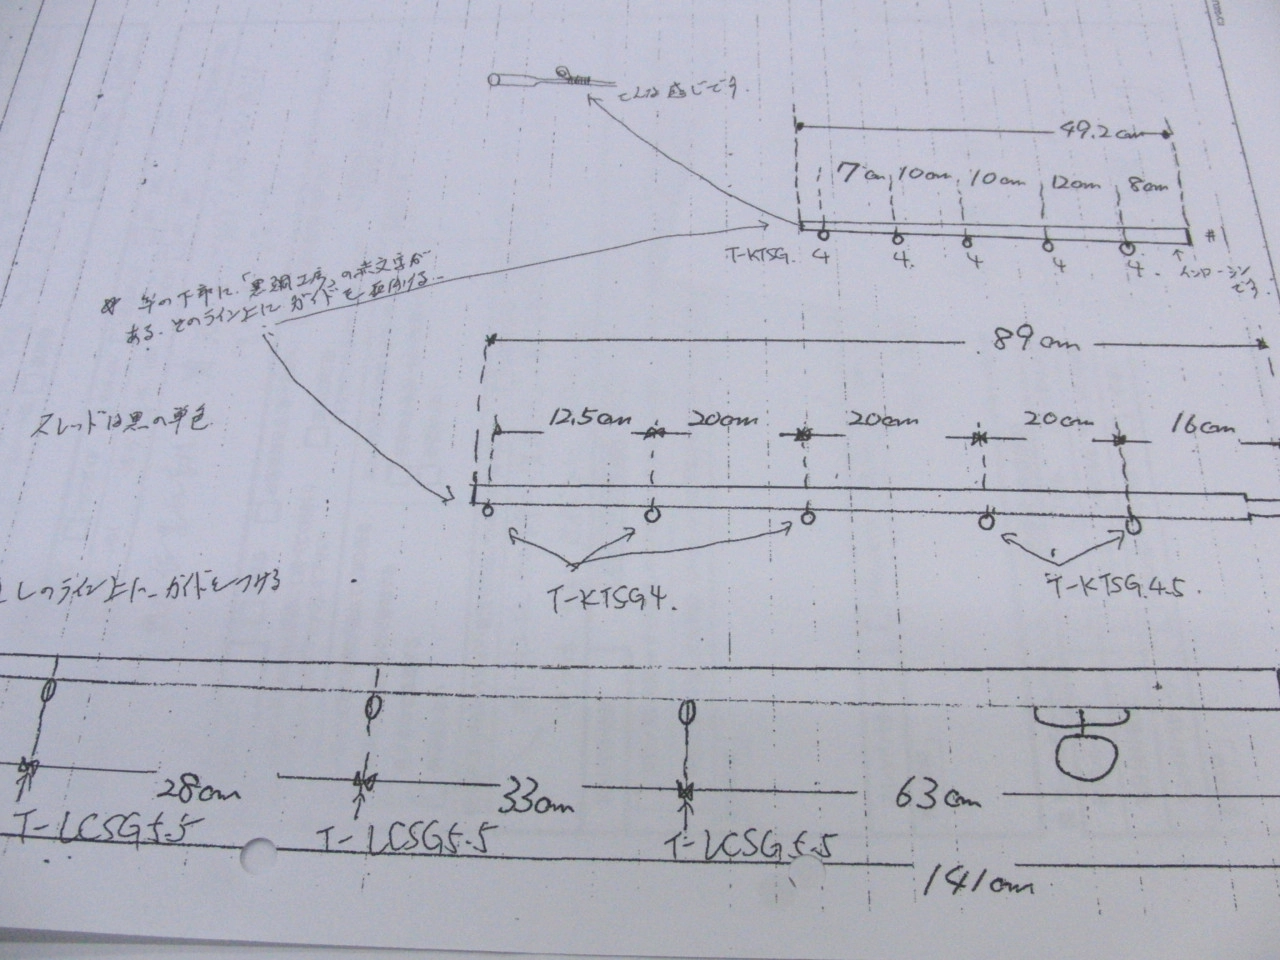 こんな感じです.
49.2cm
7cm 10cm 10cm 12cm 8cm
T-KTSG. 4 4. 4 4 4. #
インローラン
です.
* 竿の下部に.「黒鯛工房」の赤文字が
ある. そのライン上に ガイドを取付ける...
89cm
12.5cm 20cm 20cm 20cm 16cm
スレッドは黒の単色
T-KTSG4. T-KTSG.4.5.
しのライン上に ガイドをつける
28cm 33cm 63cm
T-LCSG5.5 T-LCSG5.5 T-LCSG5.5
141cm